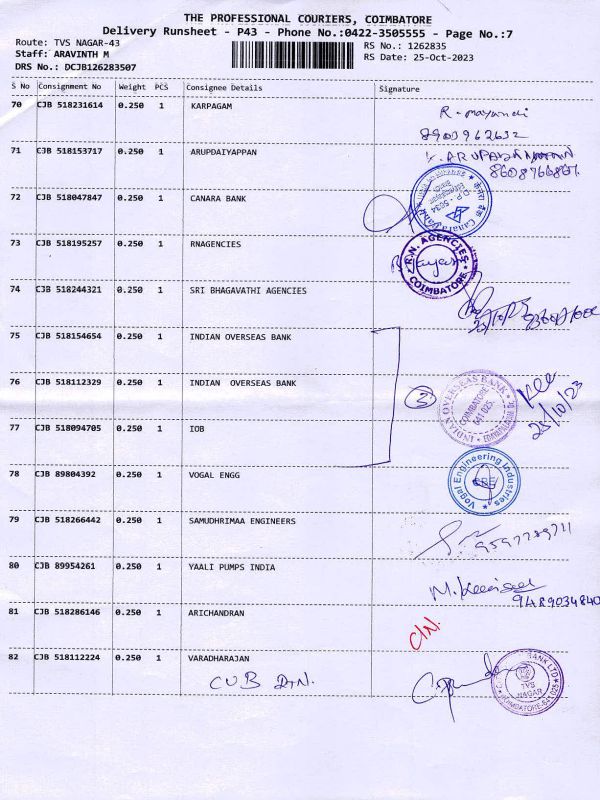 THE PROFESSIONAL COURIERS, COIMBATORE
Delivery Runsheet - P43 - Phone No.:0422-3505555 - Page No.:7
Route: TVS NAGAR-43 RS No.: 1262835
Staff: ARAVINTH M RS Date: 25-Oct-2023
DRS No.: DCJB126283507
S No Consignment No Weight PCS Consignee Details Signature
70 CJB 518231614 0.250 1 KARPAGAM
8903962632
71 CJB 518153717 0.250 1 ARUPDAIYAPPAN
72 CJB 518047847 0.250 1 CANARA BANK
Canara Bank
73 CJB 518195257 0.250 1 RNAGENCIES
R.N. AGENCIES
COIMBATORE
74 CJB 518244321 0.250 1 SRI BHAGAVATHI AGENCIES
75 CJB 518154654 0.250 1 INDIAN OVERSEAS BANK
76 CJB 518112329 0.250 1 INDIAN OVERSEAS BANK
3
INDIAN OVERSEAS BANK
COIMBATORE
641 025
25/10/23
77 CJB 518094705 0.250 1 IOB
78 CJB 89804392 0.250 1 VOGAL ENGG
Vogal Engineering Industries
79 CJB 518266442 0.250 1 SAMUDHRIMAA ENGINEERS
80 CJB 89954261 0.250 1 YAALI PUMPS INDIA
81 CJB 518286146 0.250 1 ARICHANDRAN
C/N.
82 CJB 518112224 0.250 1 VARADHARAJAN
CUB
BANK LTD
TVS
NAGAR